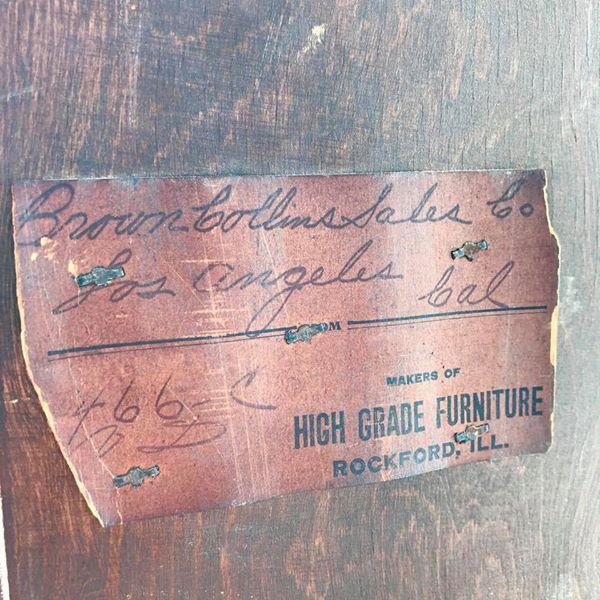 Brown Collins Sales Co
Los Angeles Cal
FROM
466-C
MAKERS OF
HIGH GRADE FURNITURE
ROCKFORD, ILL.